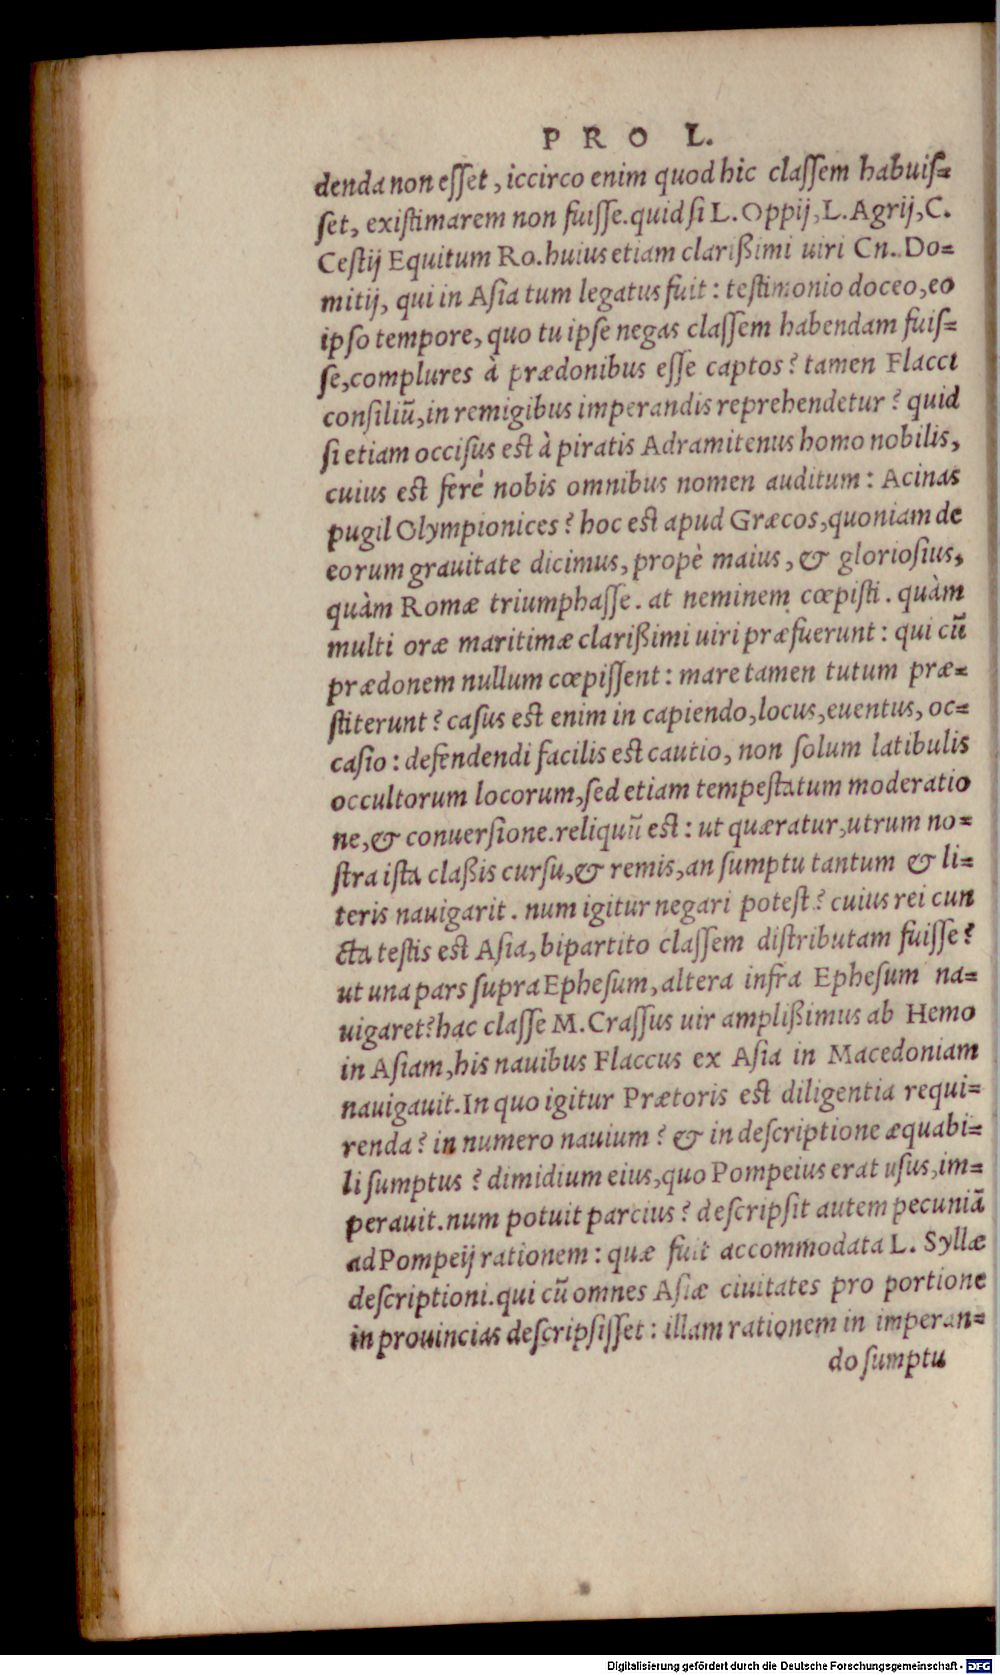 PRO L.
denda non esſet, iccirco enim quod hic claſſem habuiſ=
ſet, exiſtimarem non fuiſſe. quid ſi L. Oppij, L. Agrij, C.
Ceſtij Equitum Ro. huius etiam clarißimi uiri Cn. Do=
mitij, qui in Aſia tum legatus fuit: teſtimonio doceo, eo
ipſo tempore, quo tu ipſe negas claſſem habendam fuiſ=
ſe, complures à prædonibus eſſe captos? tamen Flacci
conſiliū, in remigibus imperandis reprehendetur? quid
ſi etiam occiſus est à piratis Adramitenus homo nobilis,
cuius est ferè nobis omnibus nomen auditum: Acinas
pugil Olympionices? hoc est apud Græcos, quoniam de
eorum grauitate dicimus, propè maius, & glorioſius,
quàm Romæ triumphaſſe. at neminem cœpiſti. quàm
multi oræ maritimæ clarißimi uiri præfuerunt: qui cū
prædonem nullum cœpiſſent: mare tamen tutum præ=
ſtiterunt? caſus est enim in capiendo, locus, euentus, oc=
caſio: defendendi facilis est cautio, non ſolum latibulis
occultorum locorum, ſed etiam tempeſtatum moderatio
ne, & conuerſione. reliquū est: ut quæratur, utrum no=
ſtra iſta claßis curſu, & remis, an ſumptu tantum & li=
teris nauigarit. num igitur negari potest? cuius rei cun
cta teſtis est Aſia, bipartito claſſem diſtributam fuiſſe?
ut una pars ſupra Epheſum, altera infra Epheſum na=
uigaret? hac claſſe M. Craſſus uir amplißimus ab Hemo
in Aſiam, his nauibus Flaccus ex Aſia in Macedoniam
nauigauit. In quo igitur Prætoris est diligentia requi=
renda? in numero nauium? & in deſcriptione æquabi=
li ſumptus? dimidium eius, quo Pompeius erat uſus, im=
perauit. num potuit parcius? deſcripſit autem pecuniā
ad Pompeij rationem: quæ fuit accommodata L. Syllæ
deſcriptioni. qui cū omnes Aſiæ ciuitates pro portione
in prouincias deſcripſiſſet: illam rationem in imperan=
do ſumptu
Digitalisierung gefördert durch die Deutsche Forschungsgemeinschaft - DFG